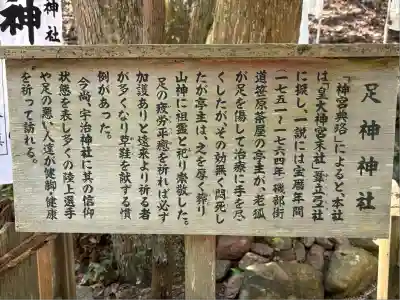 足神神社
「神宮典略」によると、本社
は「皇大神宮末社」葦立弖社
に擬し、一説には宝暦年間
一七五一~一七六四年磯部街
道笹原茶屋の亭主が、老狐
が足を傷して治療に手を尽
くしたが、その効無く悶死し
たが亭主は、之を厚く葬り
山神に祖霊と祀り崇敬した。
足の疲労平癒を祈れば必ず
加護ありと遠来より祈る者
が多くなり草鞋を献ずる慣
例があった。
今尚、宇治神社に其の信仰
状態を表し多くの陸上選手
や足の悪い人達が健脚・健康
を祈って訪れる。
神
神社
神